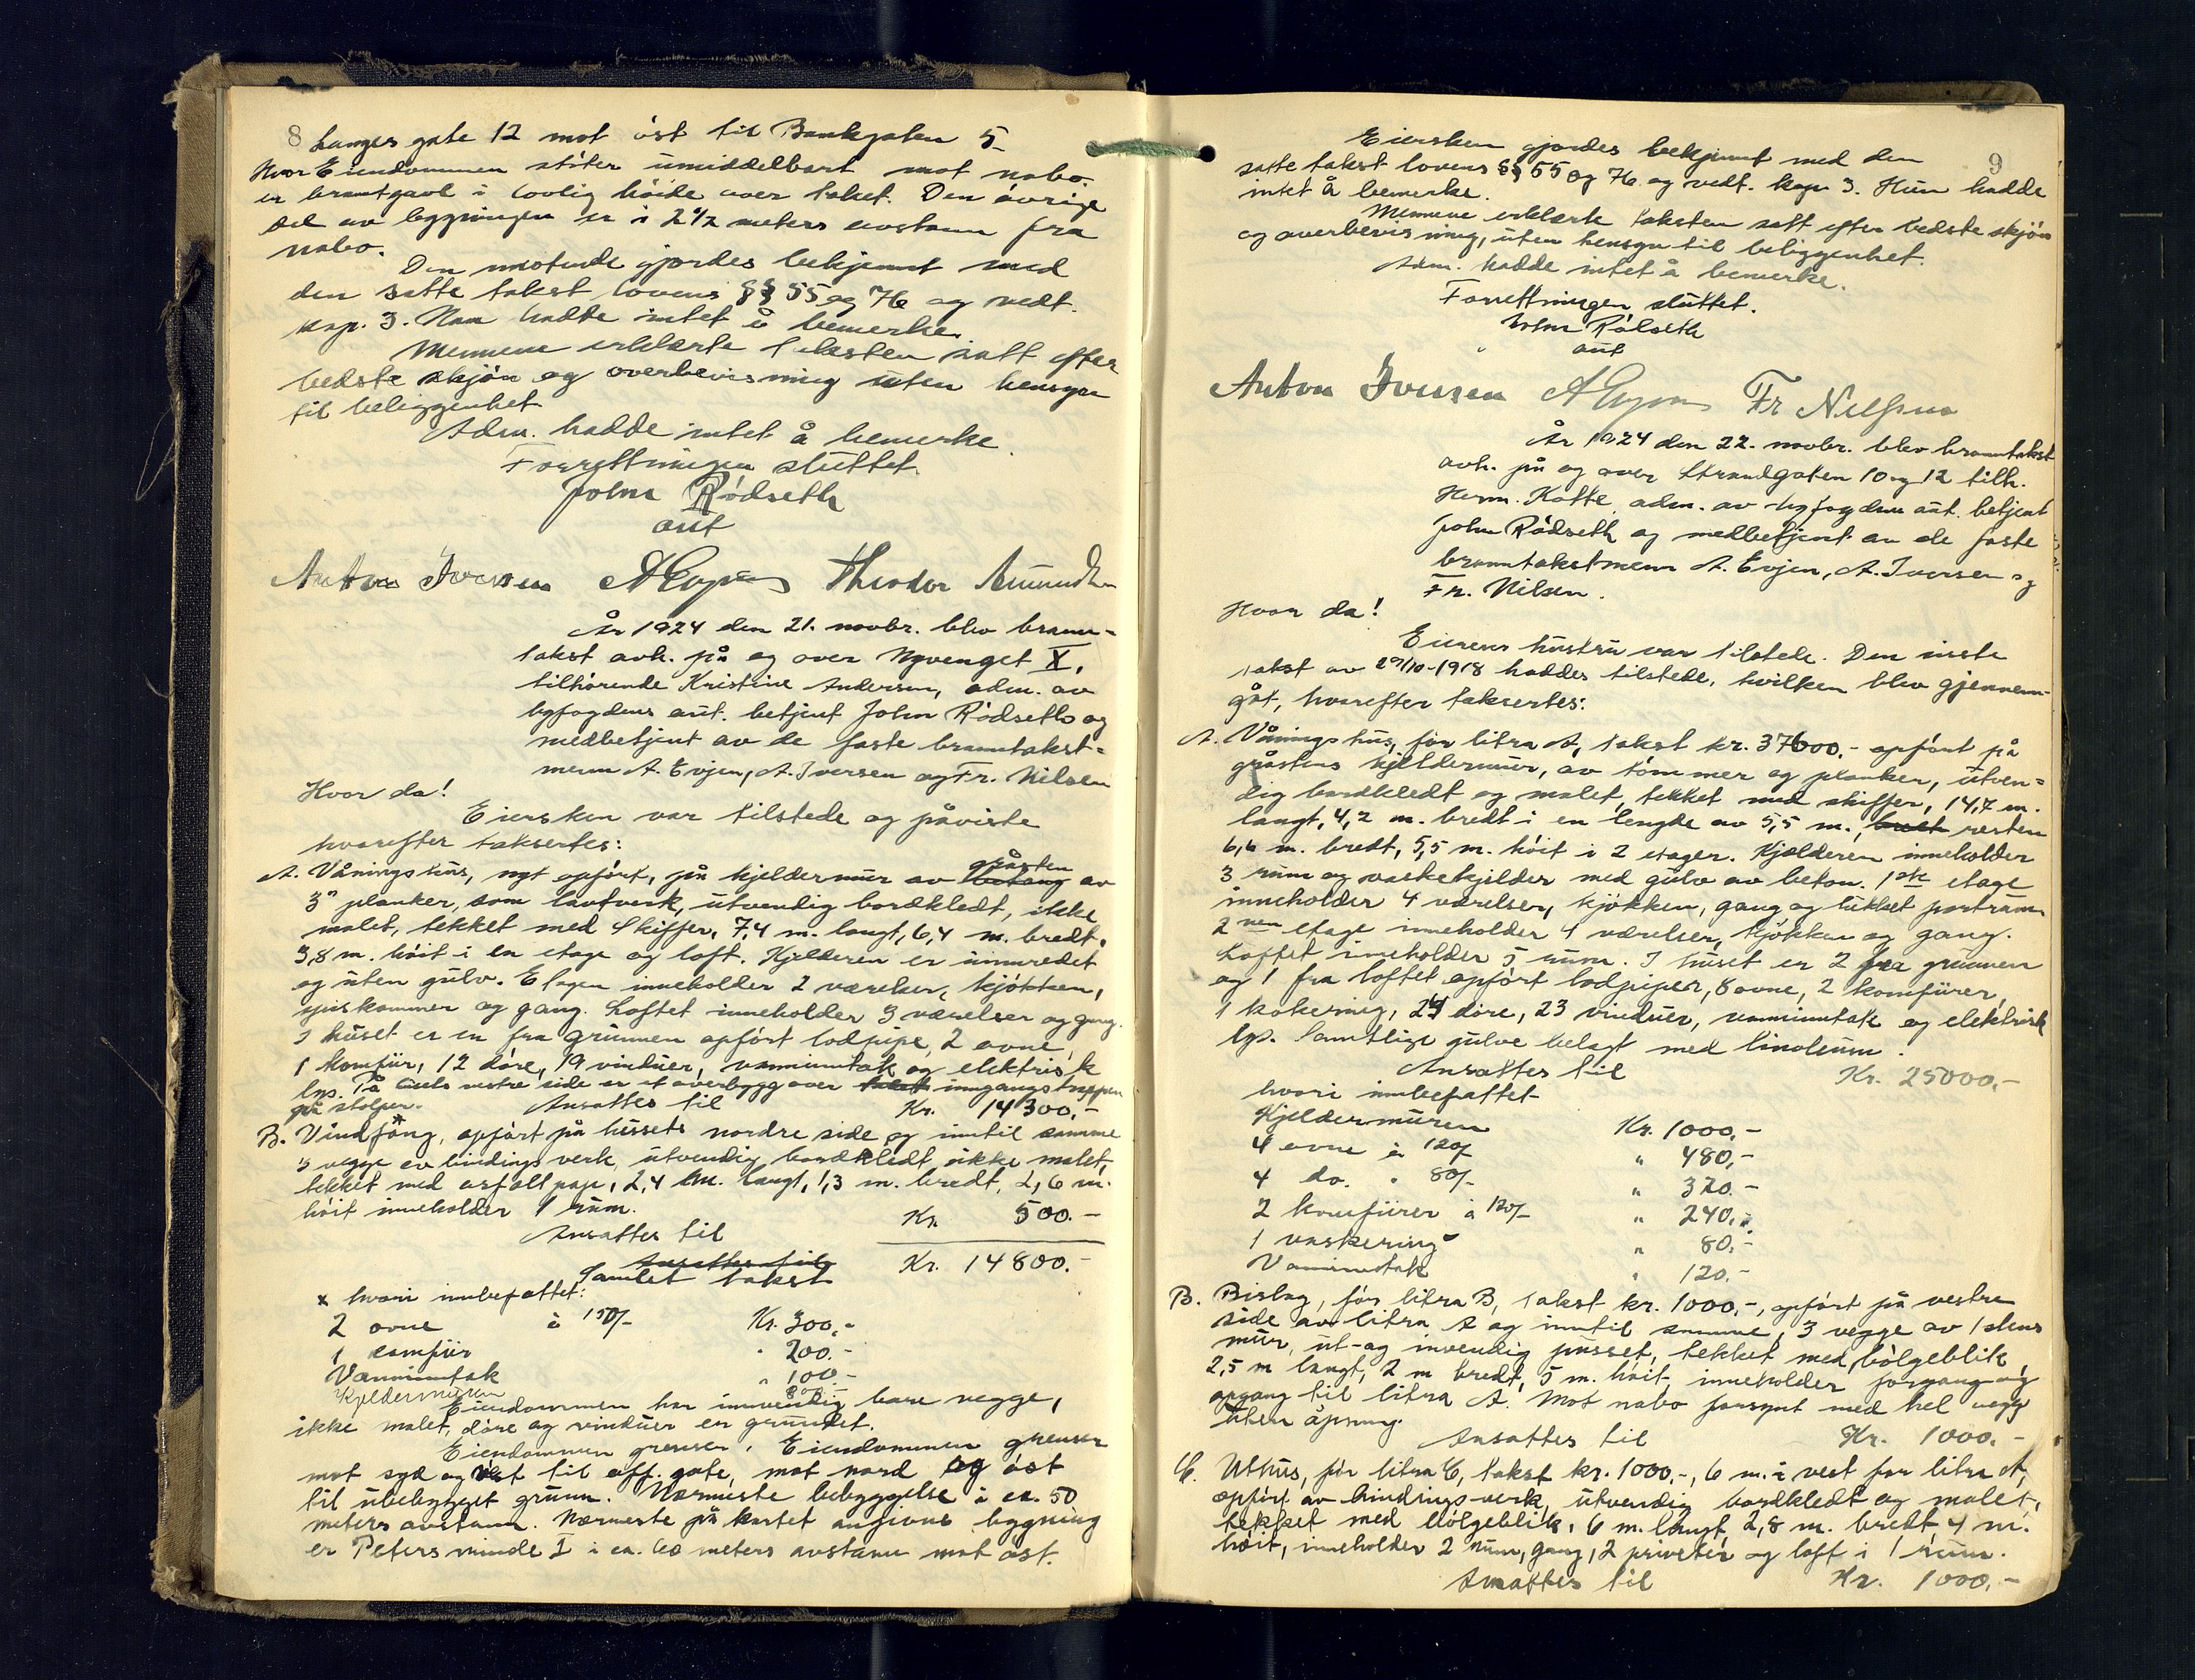 8 Langes gate 12 mot øst til Bankgaten 5
Hvor Eiendommen støter umiddelbart mot nabo
er branngavl i lovlig høide over taket. Den øvrige
del av bygningen er i 2 1/2 meters avstann fra
nabo.
Den møtende gjordes bekjennt med
den satte takst lovens §§ 55 og 76 og vedt.
kap. 3. Han hadde intet å bemerke.
Mennene erklærte taksten satt efter
bedste skjøn og overbevisning uten hensyn
til beliggenhet.
Adm. hadde intet å bemerke.
Forrettningen sluttet.
John Rödseth
aut
Anton Iversen A Evjen Theodor Amundsen
År 1924 den 21. novbr. blev brann-
takst avh. på og over Nyvenget X,
tilhørende Kristine Andersen, adm. av
byfogdens aut. betjent John Rödseth og
medbetjent av de faste branntakst-
menn A. Evjen, A. Iversen og Fr. Nilsen
Hvor da!
Eiersken var tilstede og påviste
hvorefter taksertes:
A. Våningshus, nyt opført, på kjeldermur av gråsten av
3" planker, som lavtverk, utvendig bordkledt, ikke
malet, tekket med Skiffer, 7,4 m. langt, 6,4 m. bredt,
3,8 m. høit i en etage og loft. Kjelderen er uinnredet
og uten gulv. Etagen inneholder 2 værelser, kjøkken,
spiskammer og gang. Loftet inneholder 3 værelser og gang.
I huset er en fra grunnen opført lodpipe, 2 ovne,
1 komfur, 12 døre, 19 vinduer, vanninntak og elektrisk
lys. På husets vestre side er et overbygg over inngangstrappen
på stolper. Ansattes til Kr. 14300,-
B. Vindfang, opført på hussets nordre side og inntil samme
3 vegge av bindingsverk, utvendig bordkledt ikke malet,
tekket med asfaltpap, 2,4 m. langt, 1,3 m. bredt, 2,6 m.
høit inneholder 1 rum.
Ansattes til Kr. 500.-
Ansattes til
Samlet takst Kr. 14800.-
x hvori innbefattet:
2 ovne à 150/- Kr. 300,-
1 komfur " 200.-
Vanninntak " 100.-
Kjeldermuren 800.-
Eiendommen har innvendig bare vegge,
ikke malet, døre og vinduer er grundet.
Eiendommens grenser. Eiendommen grenser
mot syd og vest til off. gate, mot nord og øst
til ubebygget grunn. Nærmeste bebyggelse i ca. 50
meters avstann. Nærmeste på kartet angivne bygning
er Petersminde I i ca. 60 meters avstann mot øst.
9
Eiersken gjordes bekjennt med den
satte takst lovens §§ 55 og 76 og vedt. kap. 3. Hun hadde
intet å bemerke.
Mennene erklærte taksten satt efter bedste skjøn
og overbevisning, uten hensyn til beliggenhet.
Adm. hadde intet å bemerke.
Forrettningen sluttet.
John Rödseth
aut
Anton Iversen A Evjen Fr Nilsen
År 1924 den 22. novbr. blev branntakst
avh. på og over Strandgaten 10 og 12 tilh.
Herm. Koffe, adm. av byfogdens aut. betjent
John Rödseth og medbetjent av de faste
branntakstmenn A. Evjen, A. Iversen og
Fr. Nilsen.
Hvor da!
Eierens hustru var tilstede. Den siste
takst av 29/10-1918 haddes tilstede, hvilken blev gjennem-
gåt, hvorefter taksertes:
A. Våningshus, før litra A, takst kr. 37600.- opført på
gråstens kjeldermur, av tømmer og planker, utven-
dig bordkledt og malet, tekket med skiffer, 14,7 m.
langt, 4,2 m. bredt i en lengde av 5,5 m., bredt resten
6,6 m. bredt, 5,5 m. høit i 2 etager. Kjelderen inneholder
3 rum og vaskekjelder med gulv av beton. 1ste etage
inneholder 4 værelser, kjøkken, gang og lukket portrum
2nen etage inneholder 4 værelser, kjøkken og gang.
Loftet inneholder 5 rum. I huset er 2 fra grunnen
og 1 fra loftet opført lodpiper, 8 ovne, 2 komfurer,
1 kokering, 24 døre, 23 vinduer, vanninntak og elektrisk
lys. Samtlige gulve belagt med linoleum.
Ansattes til Kr. 25000,-
hvori innbefattet
Kjeldermuren Kr. 1000,-
4 ovne à 120/- " 480,-
4 do. " 80/- " 320.-
2 komfurer à 120/- " 240,-
1 vaskering " 80,-
Vanninntak " 120.-
B. Bislag, før litra B, takst kr. 1000,-, opført på vestre
side av litra A og inntil samme, 3 vegge av 1 stens
mur, ut- og invendig pusset, tekket med bølgeblik,
2,5 m langt, 2 m bredt, 5 m. høit, inneholder forgang og
opgang til litra A. Mot nabo forsynt med hel vegg
uten åpning.
Ansattes til Kr. 1000.-
C. Uthus, før litra C, takst kr. 1000.-, 6 m. i vest for litra A,
opført av bindingsverk, utvendig bordkledt og malet,
tekket med bølgeblik, 6 m. langt, 2,8 m. bredt, 4 m.
høit, inneholder 2 rum, gang, 2 priveter og loft i 1 rum.
Ansattes til Kr. 1000,-